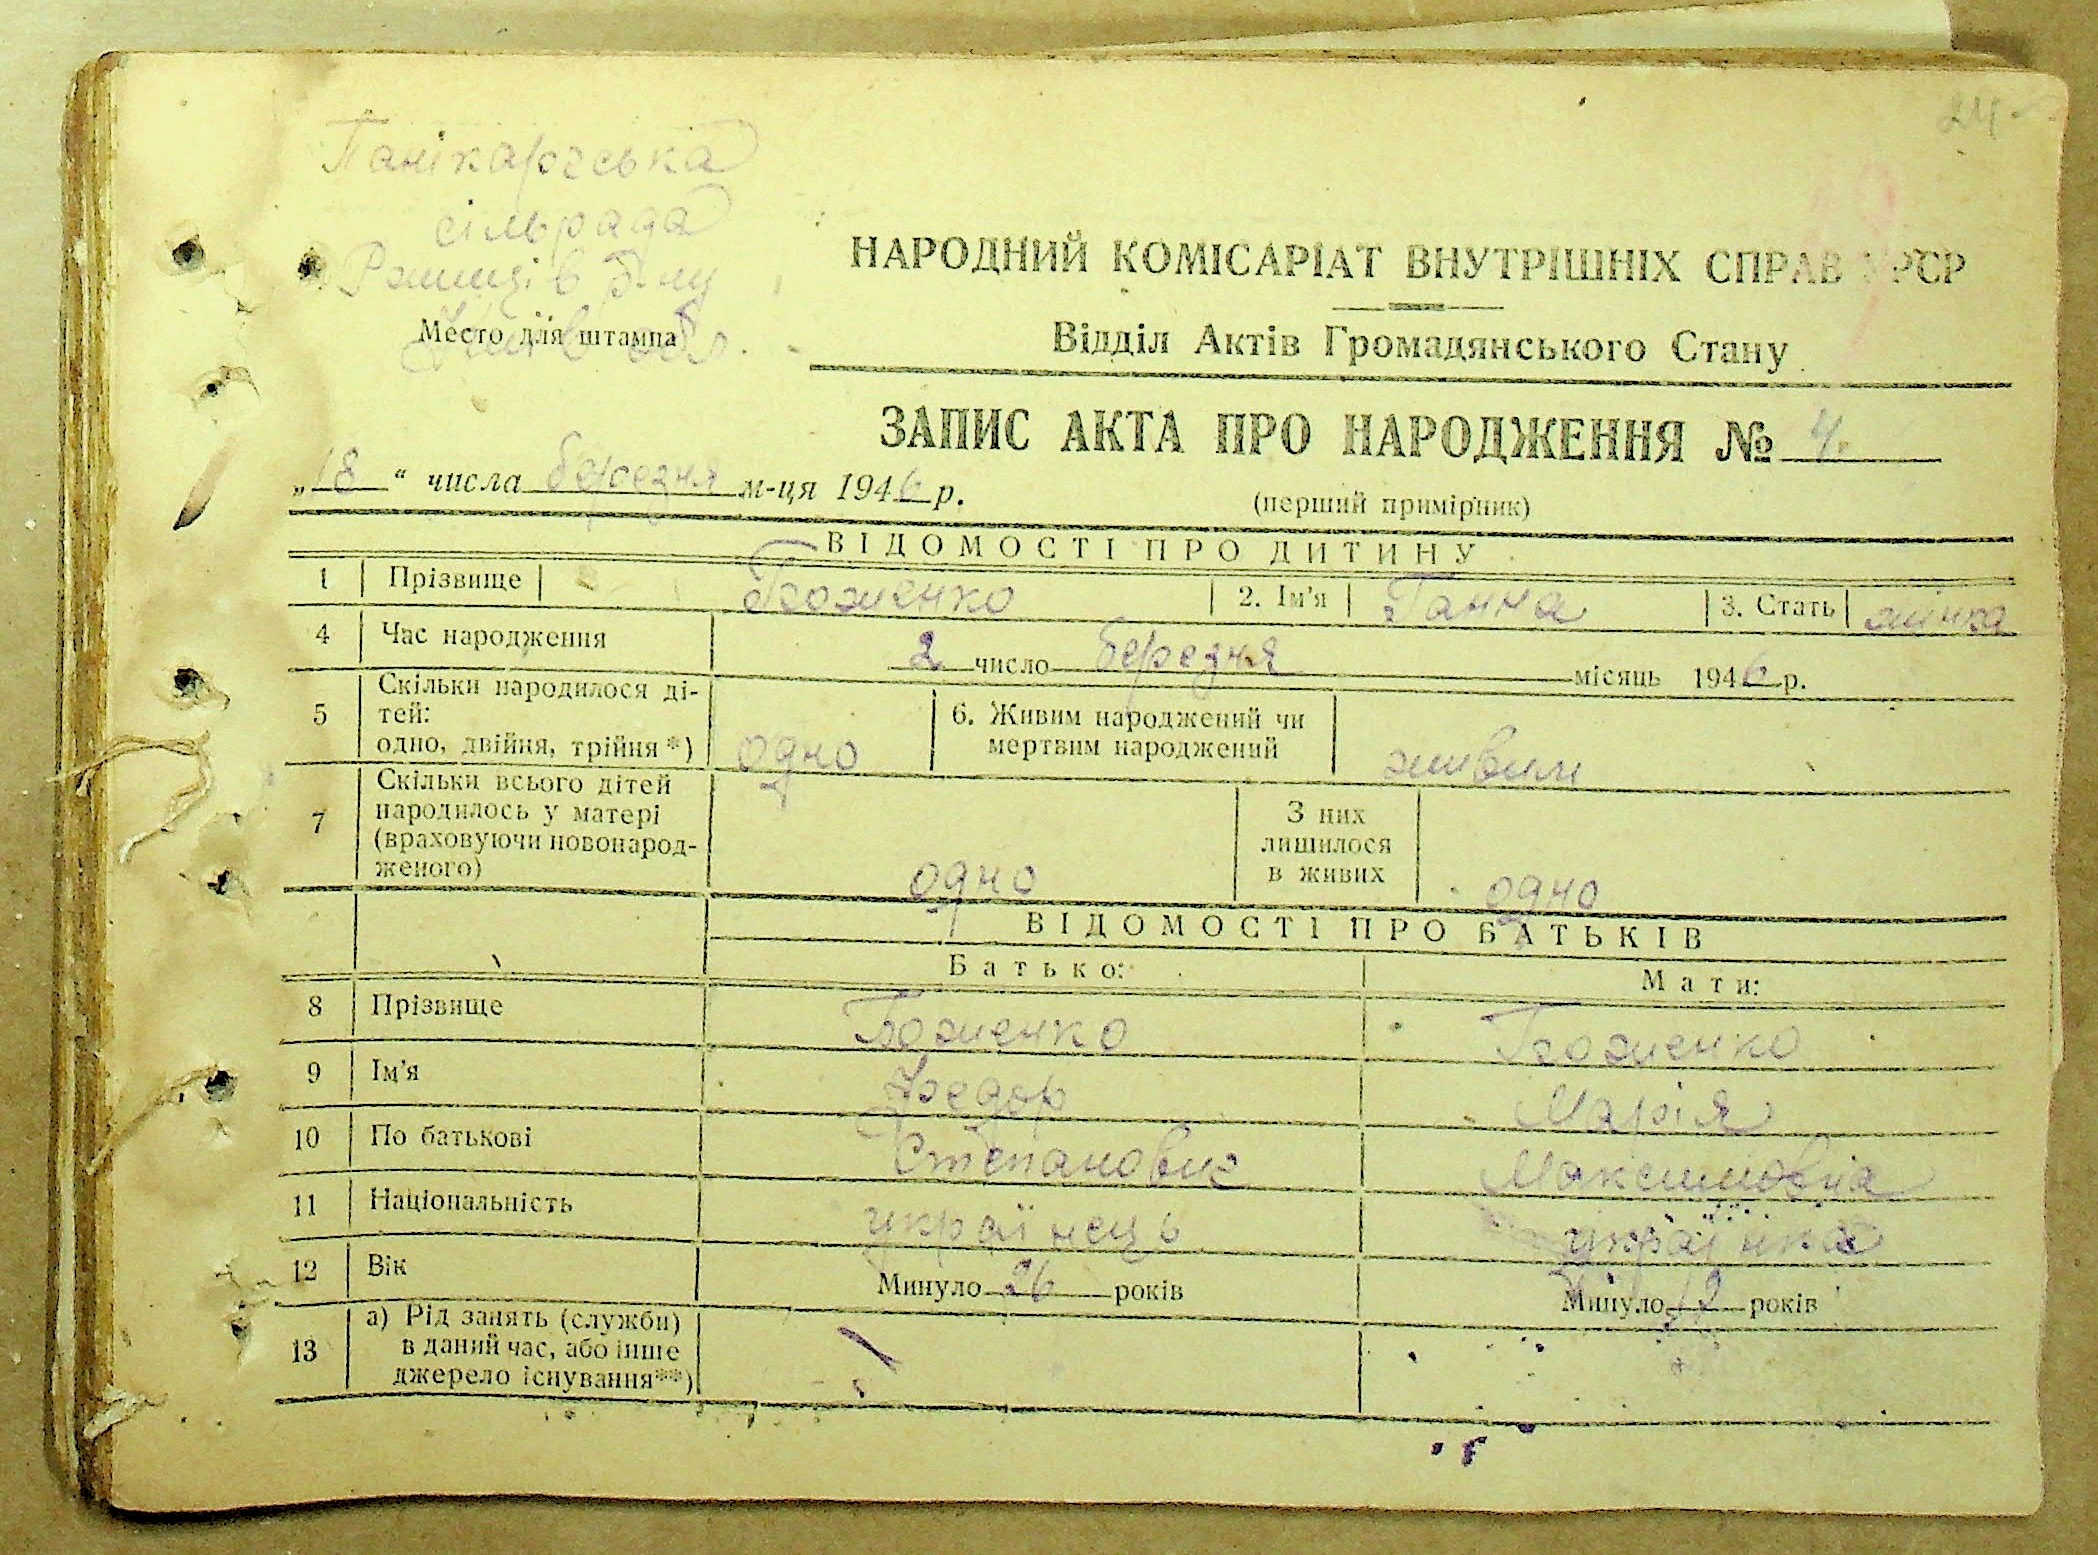 24
Панікарчська
сільрада
Ржищів р-ну
Київ обл.
НАРОДНИЙ КОМІСАРІАТ ВНУТРІШНІХ СПРАВ УРСР
Место для штампа
Відділ Актів Громадянського Стану
ЗАПИС АКТА ПРО НАРОДЖЕННЯ № 4.
„18“ числа березня м-ця 1946 р.
(перший примірник)
ВІДОМОСТІ ПРО ДИТИНУ
1 Прізвище Боженко 2. Ім'я Ганна 3. Стать жінка
4 Час народження 2 число березня місяць 1946 р.
5 Скільки народилося ді-
тей:
одно, двійня, трійня*) одно
6. Живим народжений чи
мертвим народжений живим
7 Скільки всього дітей
народилось у матері
(враховуючи новонарод-
женого) одно
З них
лишилося
в живих одно
ВІДОМОСТІ ПРО БАТЬКІВ
Батько: Мати:
8 Прізвище Боженко Боженко
9 Ім'я Федор Марія
10 По батькові Степанович Максимовна
11 Національність українець українка
12 Вік Минуло 26 років Минуло років
13 а) Рід занять (служби)
в даний час, або інше
джерело існування**)